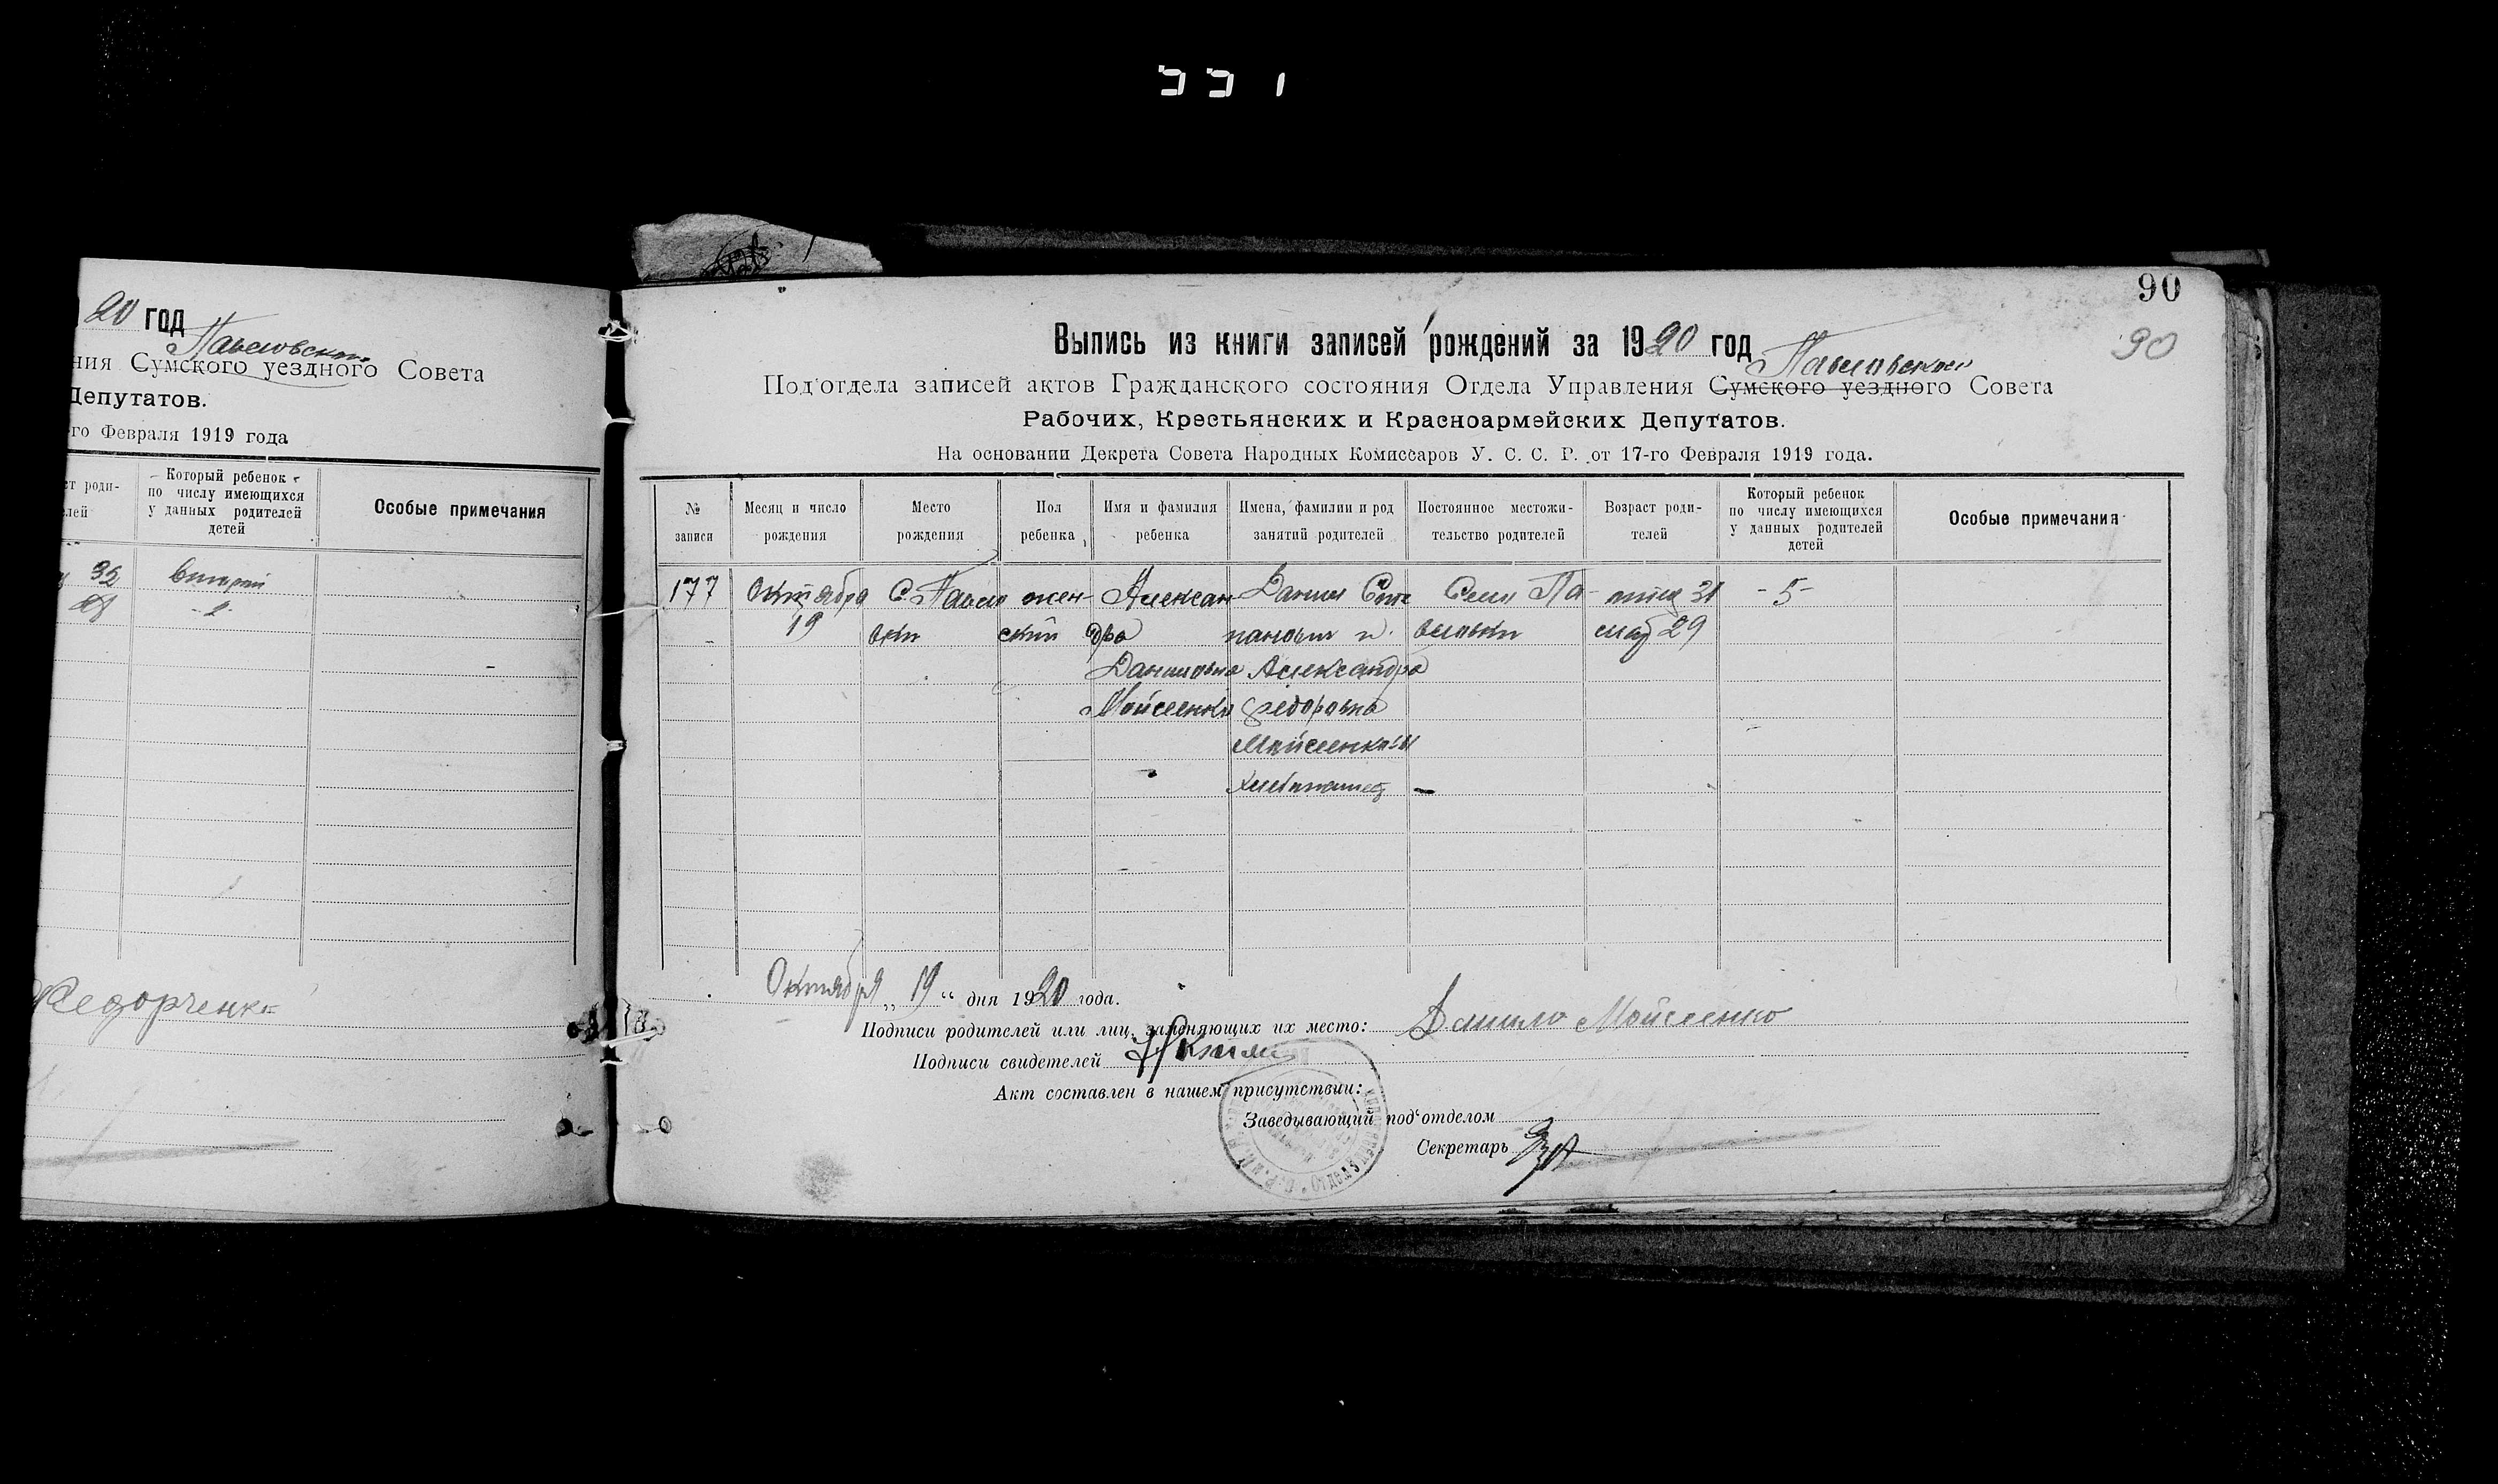 331
20 год
Павловского
ния Сумского уездного Совета
Депутатов.
го Февраля 1919 года
ст роди-
елей
Который ребенок
по числу имеющихся
у данных родителей
детей
Особые примечания
32 второй
28 -2-
Федорченко
90
90
Выпись из книги записей рождений за 1920 год
Павловского
Под'отдела записей актов Гражданского состояния Отдела Управления Сумского уездного Совета
Рабочих, Крестьянских и Красноармейских Депутатов.
На основании Декрета Совета Народных Комиссаров У. С. С. Р. от 17-го Февраля 1919 года.
№
записи
Месяц и число
рождения
Место
рождения
Пол
ребенка
Имя и фамилия
ребенка
Имена, фамилии и род
занятий родителей
Постоянное местожи-
тельство родителей
Возраст роди-
телей
Который ребенок
по числу имеющихся
у данных родителей
детей
Особые примечания
177
Октября
19
С. Павло
вки
жен-
ский
Алексан
дра
Даниловна
Мойсеенко
Данил Сте
панович и
Александра
Федоровна
Мойсеенковы
хлебопашец
Села Па-
вловки
отец 31
мать 29
-5-
Октября „ 19 “ дня 1920 года.
Подписи родителей или лиц, заменяющих их место: Данило Мойсеенко
Подписи свидетелей
Акт составлен в нашем присутствии:
Заведывающий под'отделом
Секретарь